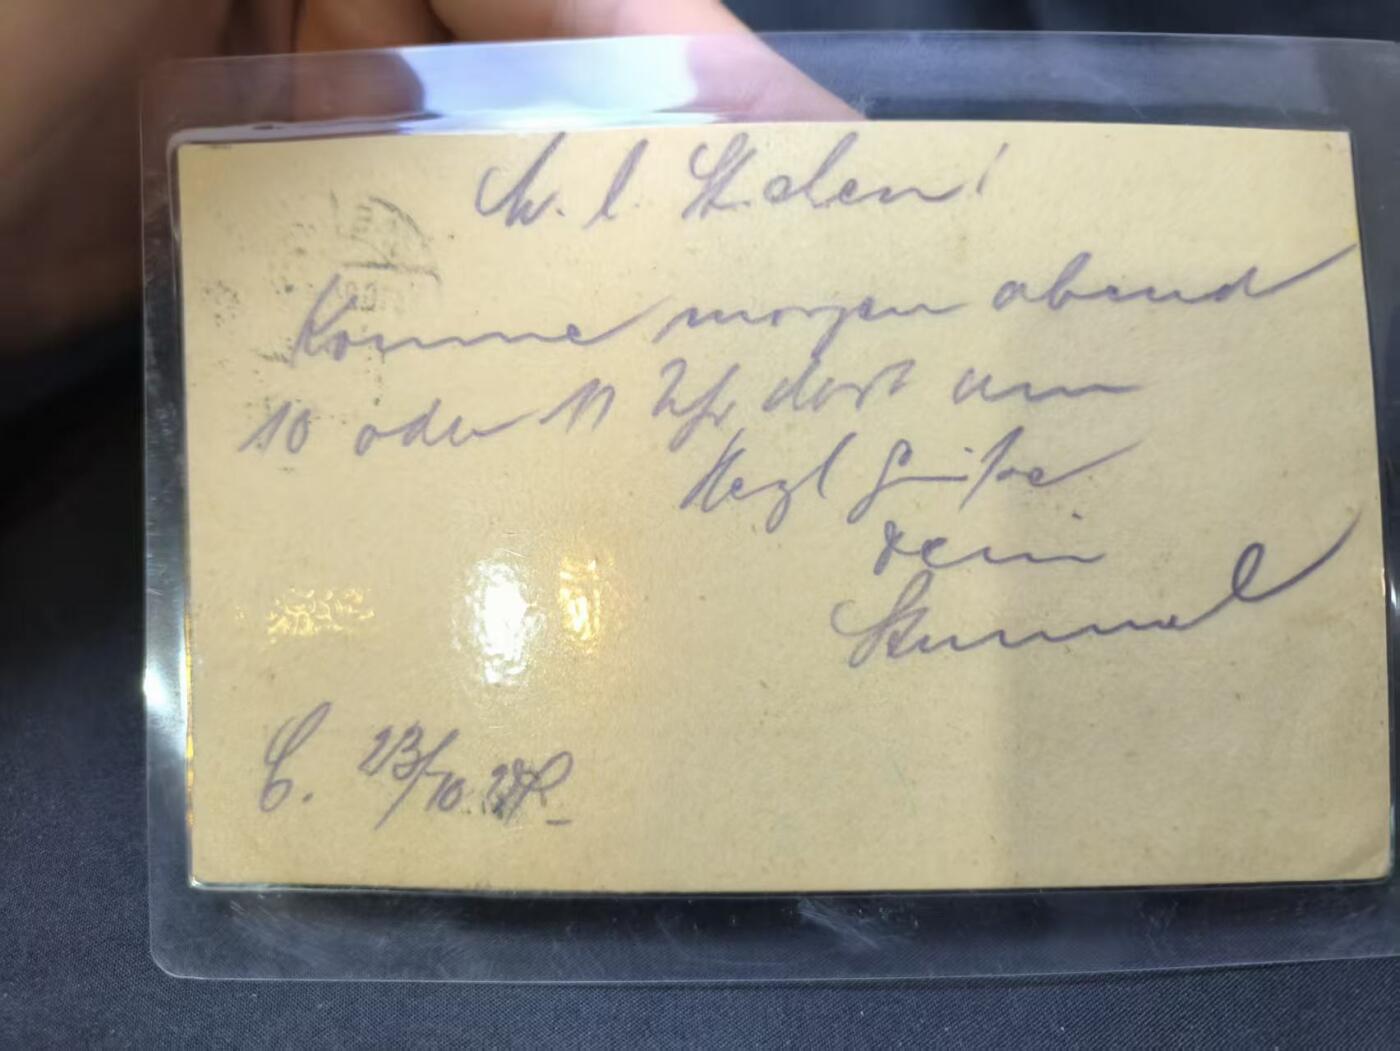 M. l. Helen!
Komme morgen abend
10 oder 11 Uhr dort an
Herzl Grüße
Dein
23/10